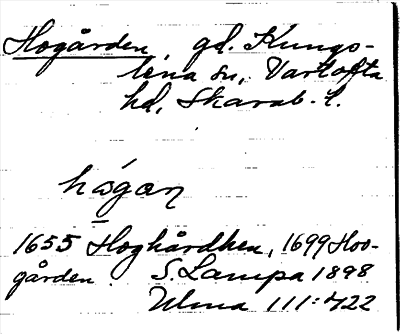 Hogården, gd. Kungs-
lena sn, Vartofta
hd, Skarab. l.
hògan
1655 Hoghårdhen, 1699 Hoo-
gården. S. Lampa 1898
Ulma 111:422